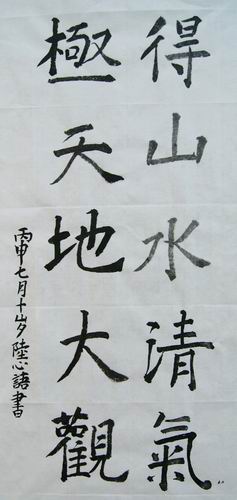 得山水清氣
極天地大觀
丙申七月十岁陸心語書